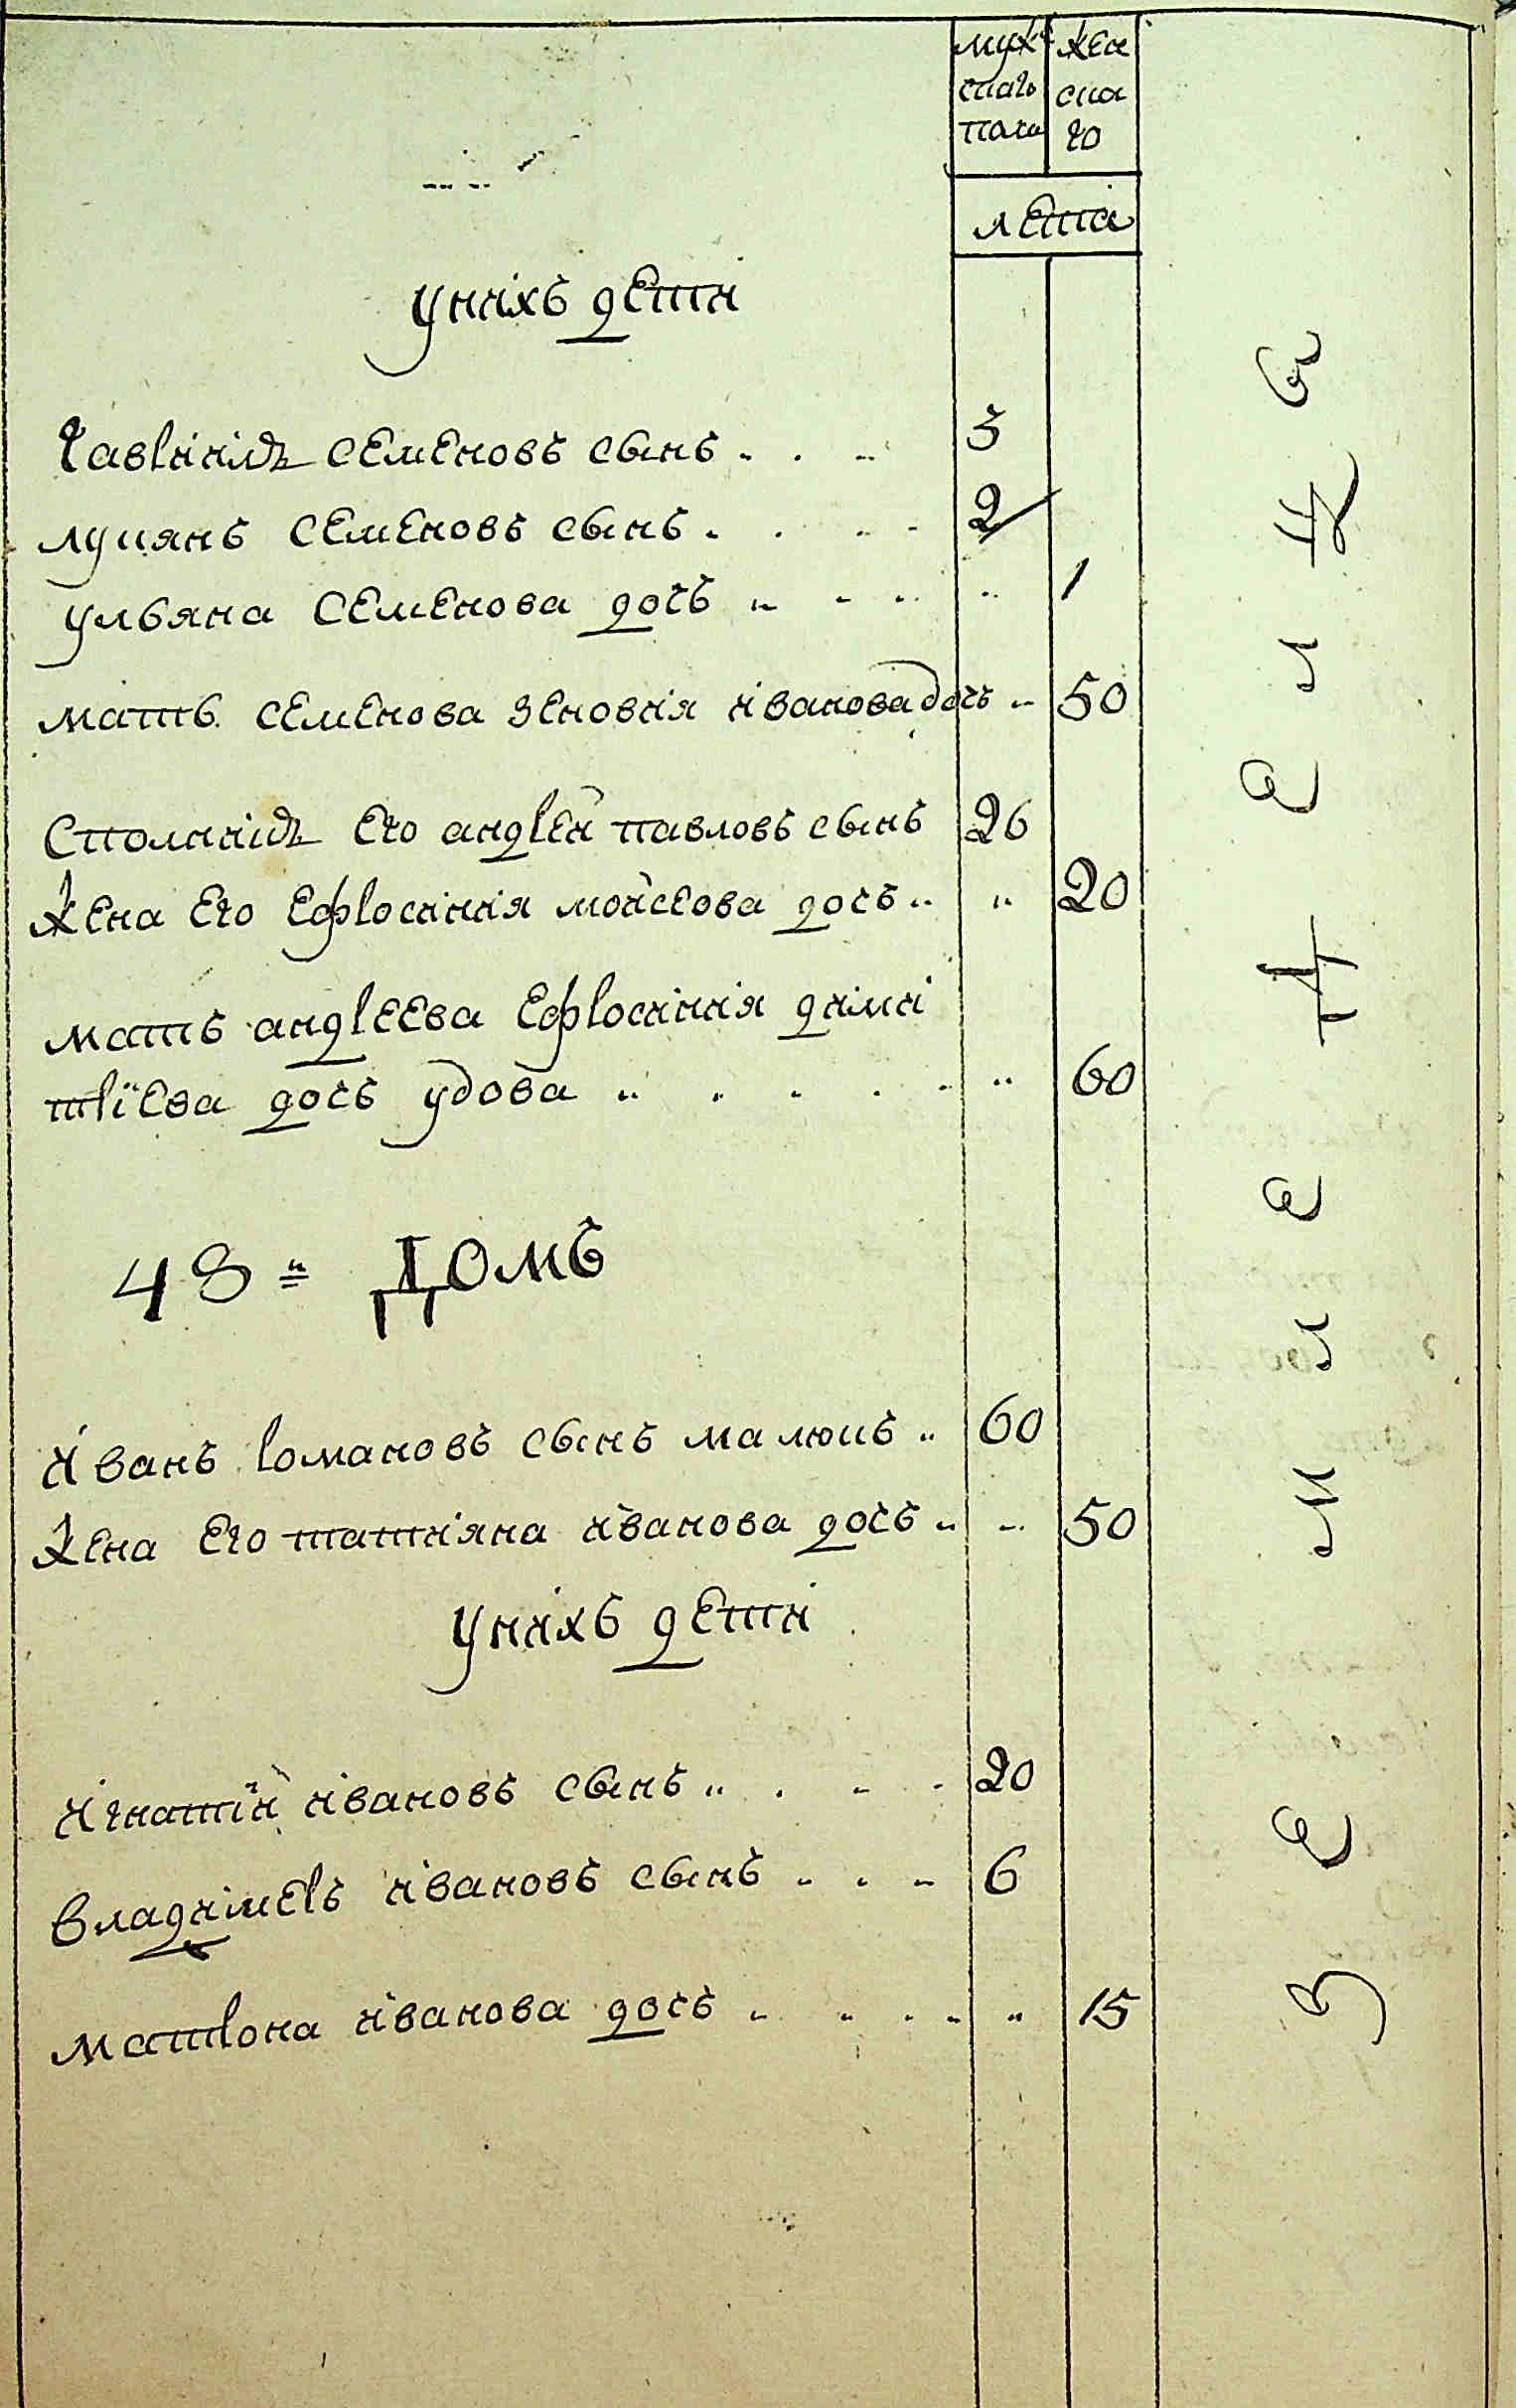 муж жен
скаго ска
пола го
лета
у нихъ дети
Гавріилъ семеновъ сынъ 3
лукянъ семеновъ сынъ 2
ульяна семенова дочь 1
мать семенова зеновия иванова дочь 50
его андрей павловъ сынъ 26
жена его ефросиния мойсеова дочь 20
мать андреева ефросиния дими
тріева дочь удова 60
48 = Домъ
иванъ романовъ сынъ малюкъ 60
жена его татияна иванова дочь 50
у нихъ дети
игнатій ивановъ сынъ 20
владимеръ ивановъ сынъ 6
матрона иванова дочь 15